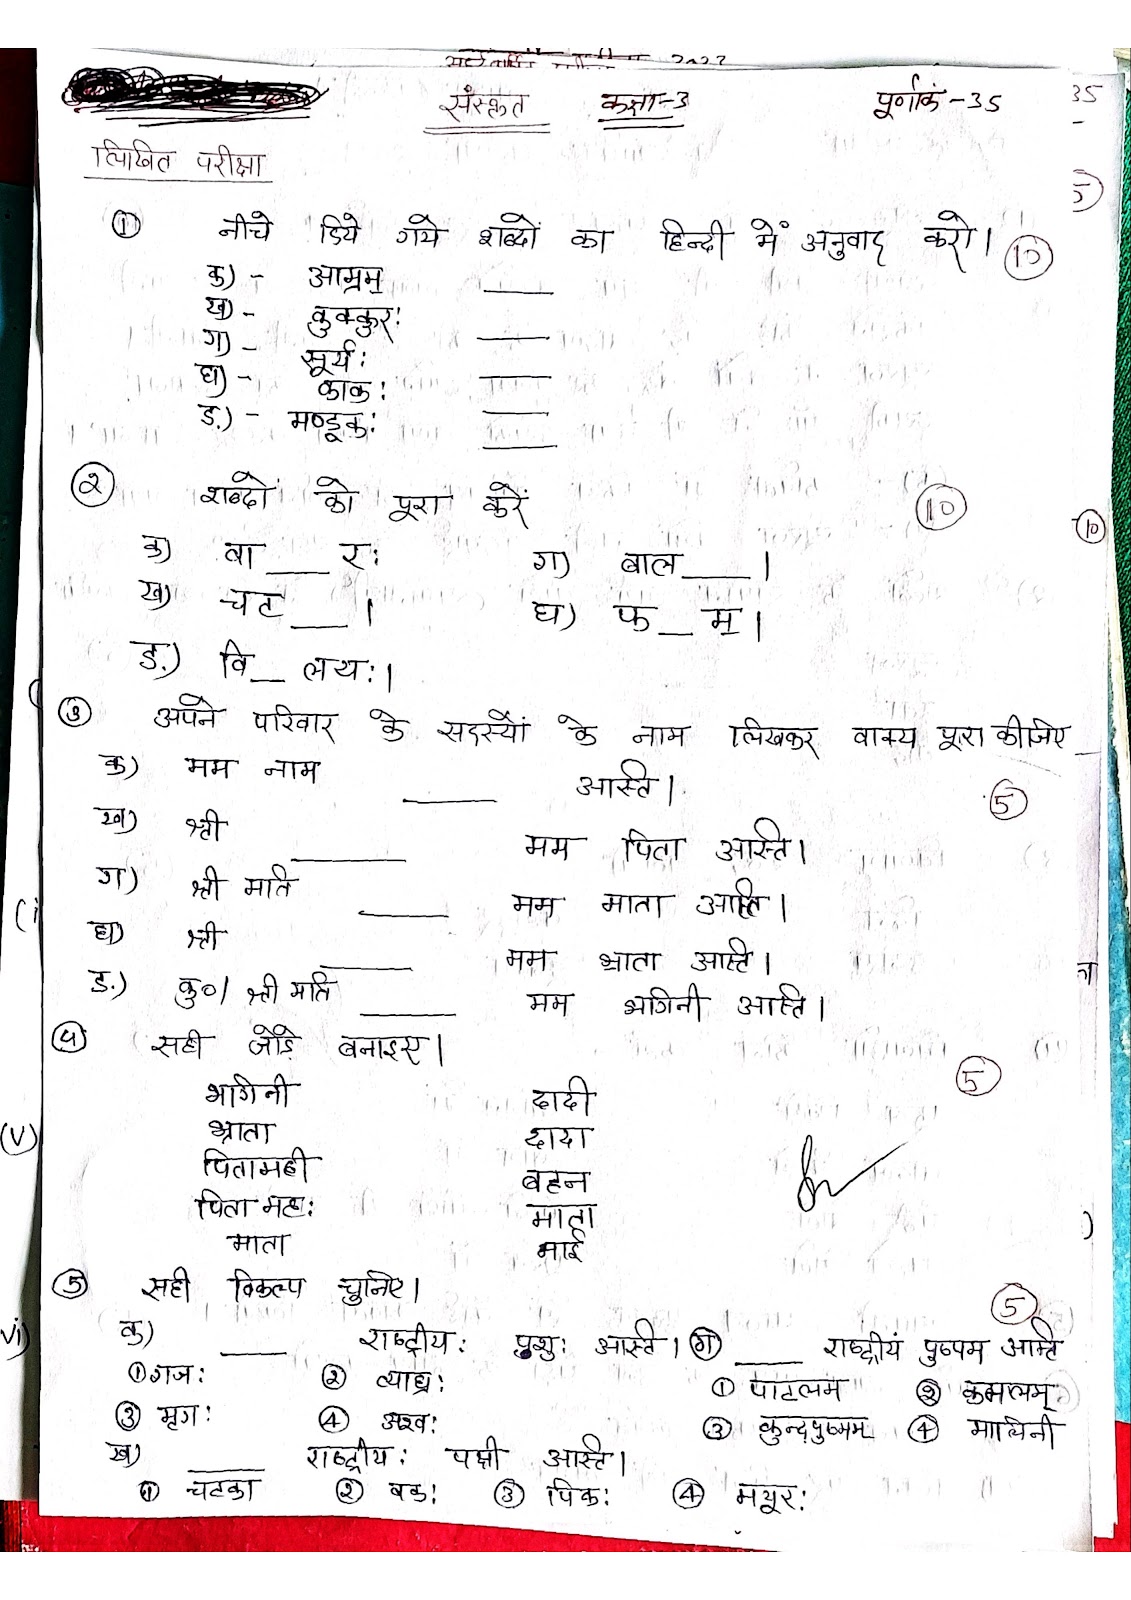 2023
संस्कृत कक्षा-3 पूर्णाकं -35
35
लिखित परीक्षा
5
① नीचे दिये गये शब्दों का हिन्दी में अनुवाद करो। 10
क) - आम्रम् ____
ख) - कुक्कुरः ____
ग) - सूर्यः ____
घ) - काकः ____
ङ) - मण्डूकः ____
② शब्दों को पूरा करें 10
10
क) वा ___ रः ग) बाल ___ ।
ख) चट ___ । घ) फ _ म् ।
ङ) वि _ लयः।
③ अपने परिवार के सदस्यों के नाम लिखकर वाक्य पूरा कीजिए
क) मम नाम ____ अस्ति। 5
ख) श्री ____ मम पिता अस्ति।
ग) श्री मति ____ मम माता अस्ति।
घ) श्री ____ मम भ्राता अस्ति।
ङ) कु०/ श्री मति ____ मम भगिनी अस्ति।
④ सही जोड़े बनाइए।
5
भगिनी दादी
भ्राता दादा
पितामही बहन
पिता महः माता
माता भाई
⑤ सही विकल्प चुनिए।
5
क) ____ राष्ट्रीयः पशुः अस्ति। ग) ____ राष्ट्रीयं पुष्पम अस्ति
① गजः ② व्याघ्रः ① पाटलम ② कमलम्
③ मृगः ④ अश्वः ③ कुन्दपुष्पम ④ मालिनी
ख) ____ राष्ट्रीयः पक्षी अस्ति।
① चटका ② बकः ③ पिकः ④ मयूरः
(v)
vi)